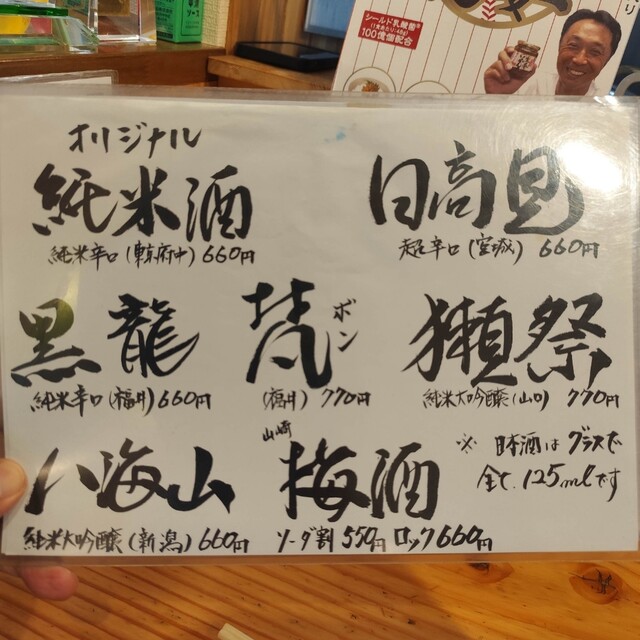 シールド乳酸菌®
100億個配合
オリジナル
純米酒
純米辛口(東京府中)660円
日高見
超辛口(宮城)660円
黒龍
純米辛口(福井)660円
梵
ボン
(福井)770円
獺祭
純米大吟醸(山口)770円
八海山
純米大吟醸(新潟)660円
山崎
梅酒
ソーダ割550円 ロック660円
※日本酒はグラスで
全て、125mlです